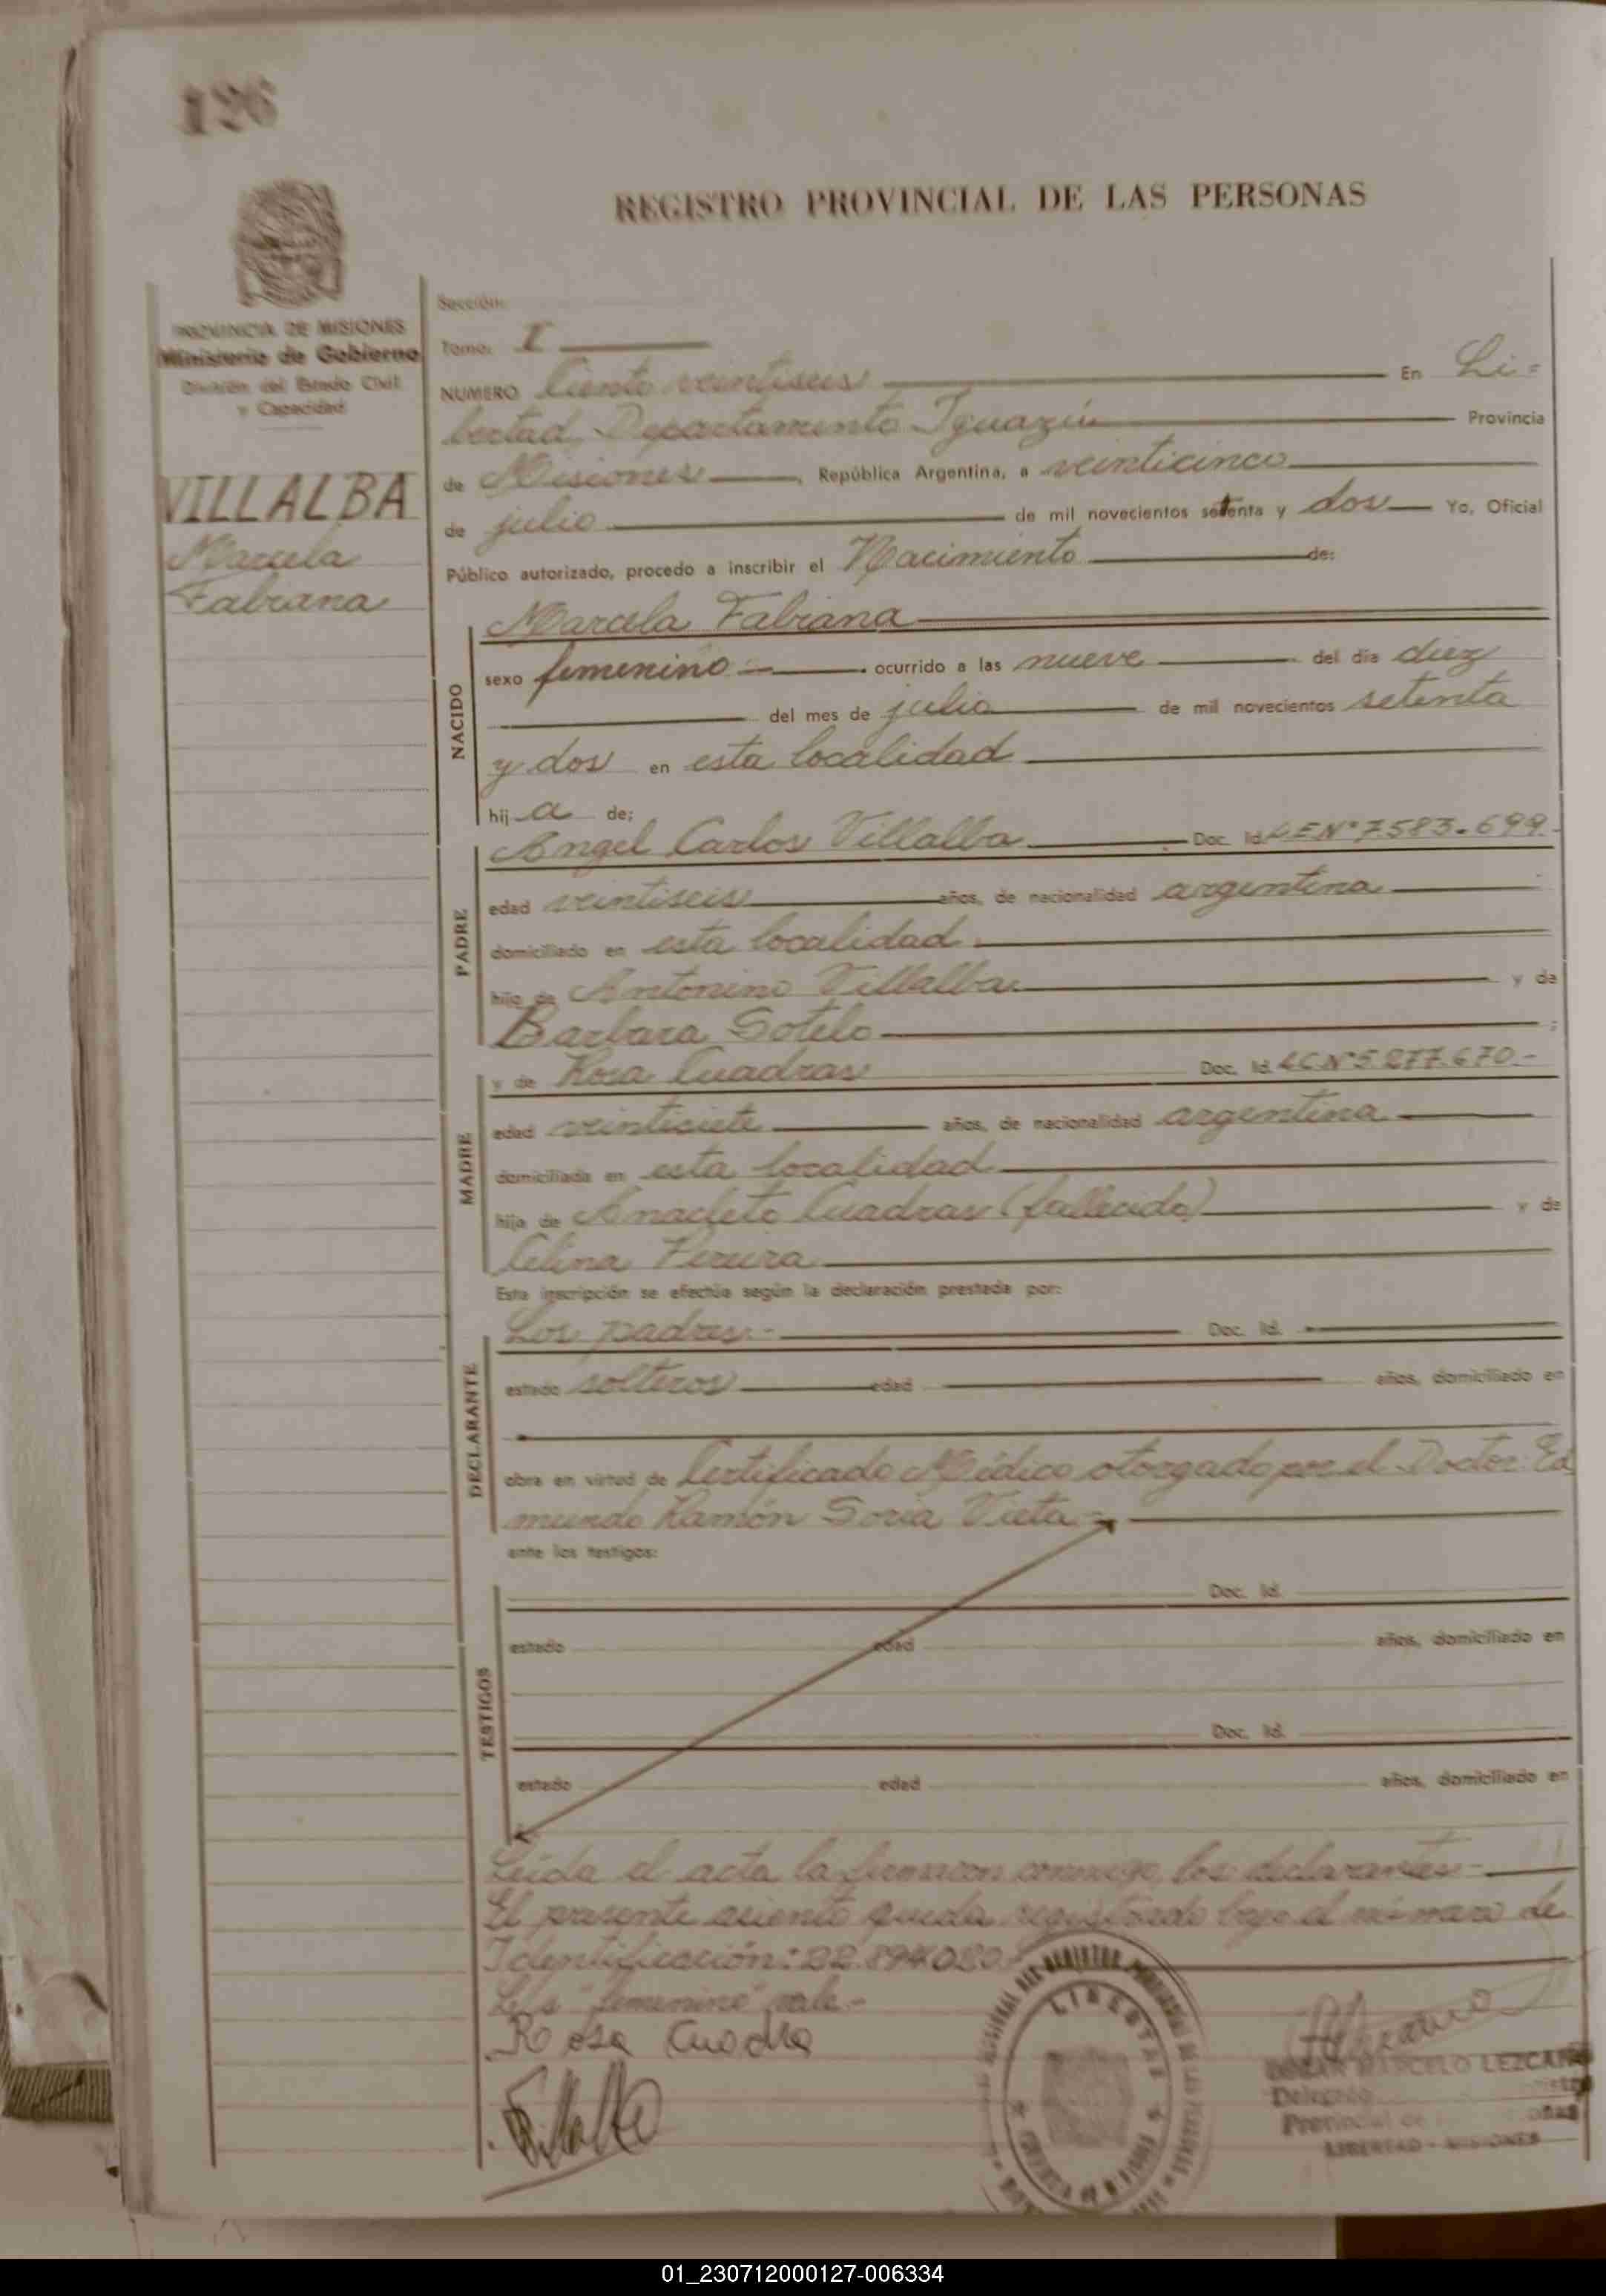 126
REGISTRO PROVINCIAL DE LAS PERSONAS
PROVINCIA DE MISIONES
Ministerio de Gobierno
División del Estado Civil
y Capacidad
VILLALBA
Marcela
Fabiana
Sección:
Tomo: I
NUMERO Ciento veintiseis En Li=
bertad, Departamento Iguazú Provincia
de Misiones, República Argentina, a veinticinco
de julio de mil novecientos setenta y dos Yo, Oficial
Público autorizado, procedo a inscribir el Nacimiento de:
NACIDO
Marcela Fabiana
sexo femenino ocurrido a las nueve del día diez
del mes de julio de mil novecientos setenta
y dos en esta localidad
hij a de:
PADRE
Angel Carlos Villalba Doc. Id. LE Nº 7.583.699
edad veintiseis años, de nacionalidad argentina
domiciliado en esta localidad
hijo de Antonino Villalba y de
Barbara Sotelo ;
MADRE
y de Rosa Cuadras Doc. Id. LC Nº 5.277.670.-
edad veintisiete años, de nacionalidad argentina
domiciliada en esta localidad
hija de Anacleto Cuadras (fallecido) y de
Celina Pereira
Esta inscripción se efectúa según la declaración prestada por:
DECLARANTE
Los padres.- Doc. Id.
estado solteros edad años, domiciliado en
obra en virtud de Certificado Médico otorgado por el Doctor: Ed
mundo Ramón Soria Vieta
ante los testigos:
TESTIGOS
Doc. Id.
estado edad años, domiciliado en
Doc. Id.
estado edad años, domiciliado en
Leída el acta la firmaron conmigo los declarantes.-
El presente asiento queda registrado bajo el número de
Identificación: 22.894.020.-
"femenino" vale.-
Roosa Cuadra
Villalba
LIBERTAD
MARCELO LEZCANO
Delegado
Provincial de
LIBERTAD - MISIONES
01_230712000127-006334